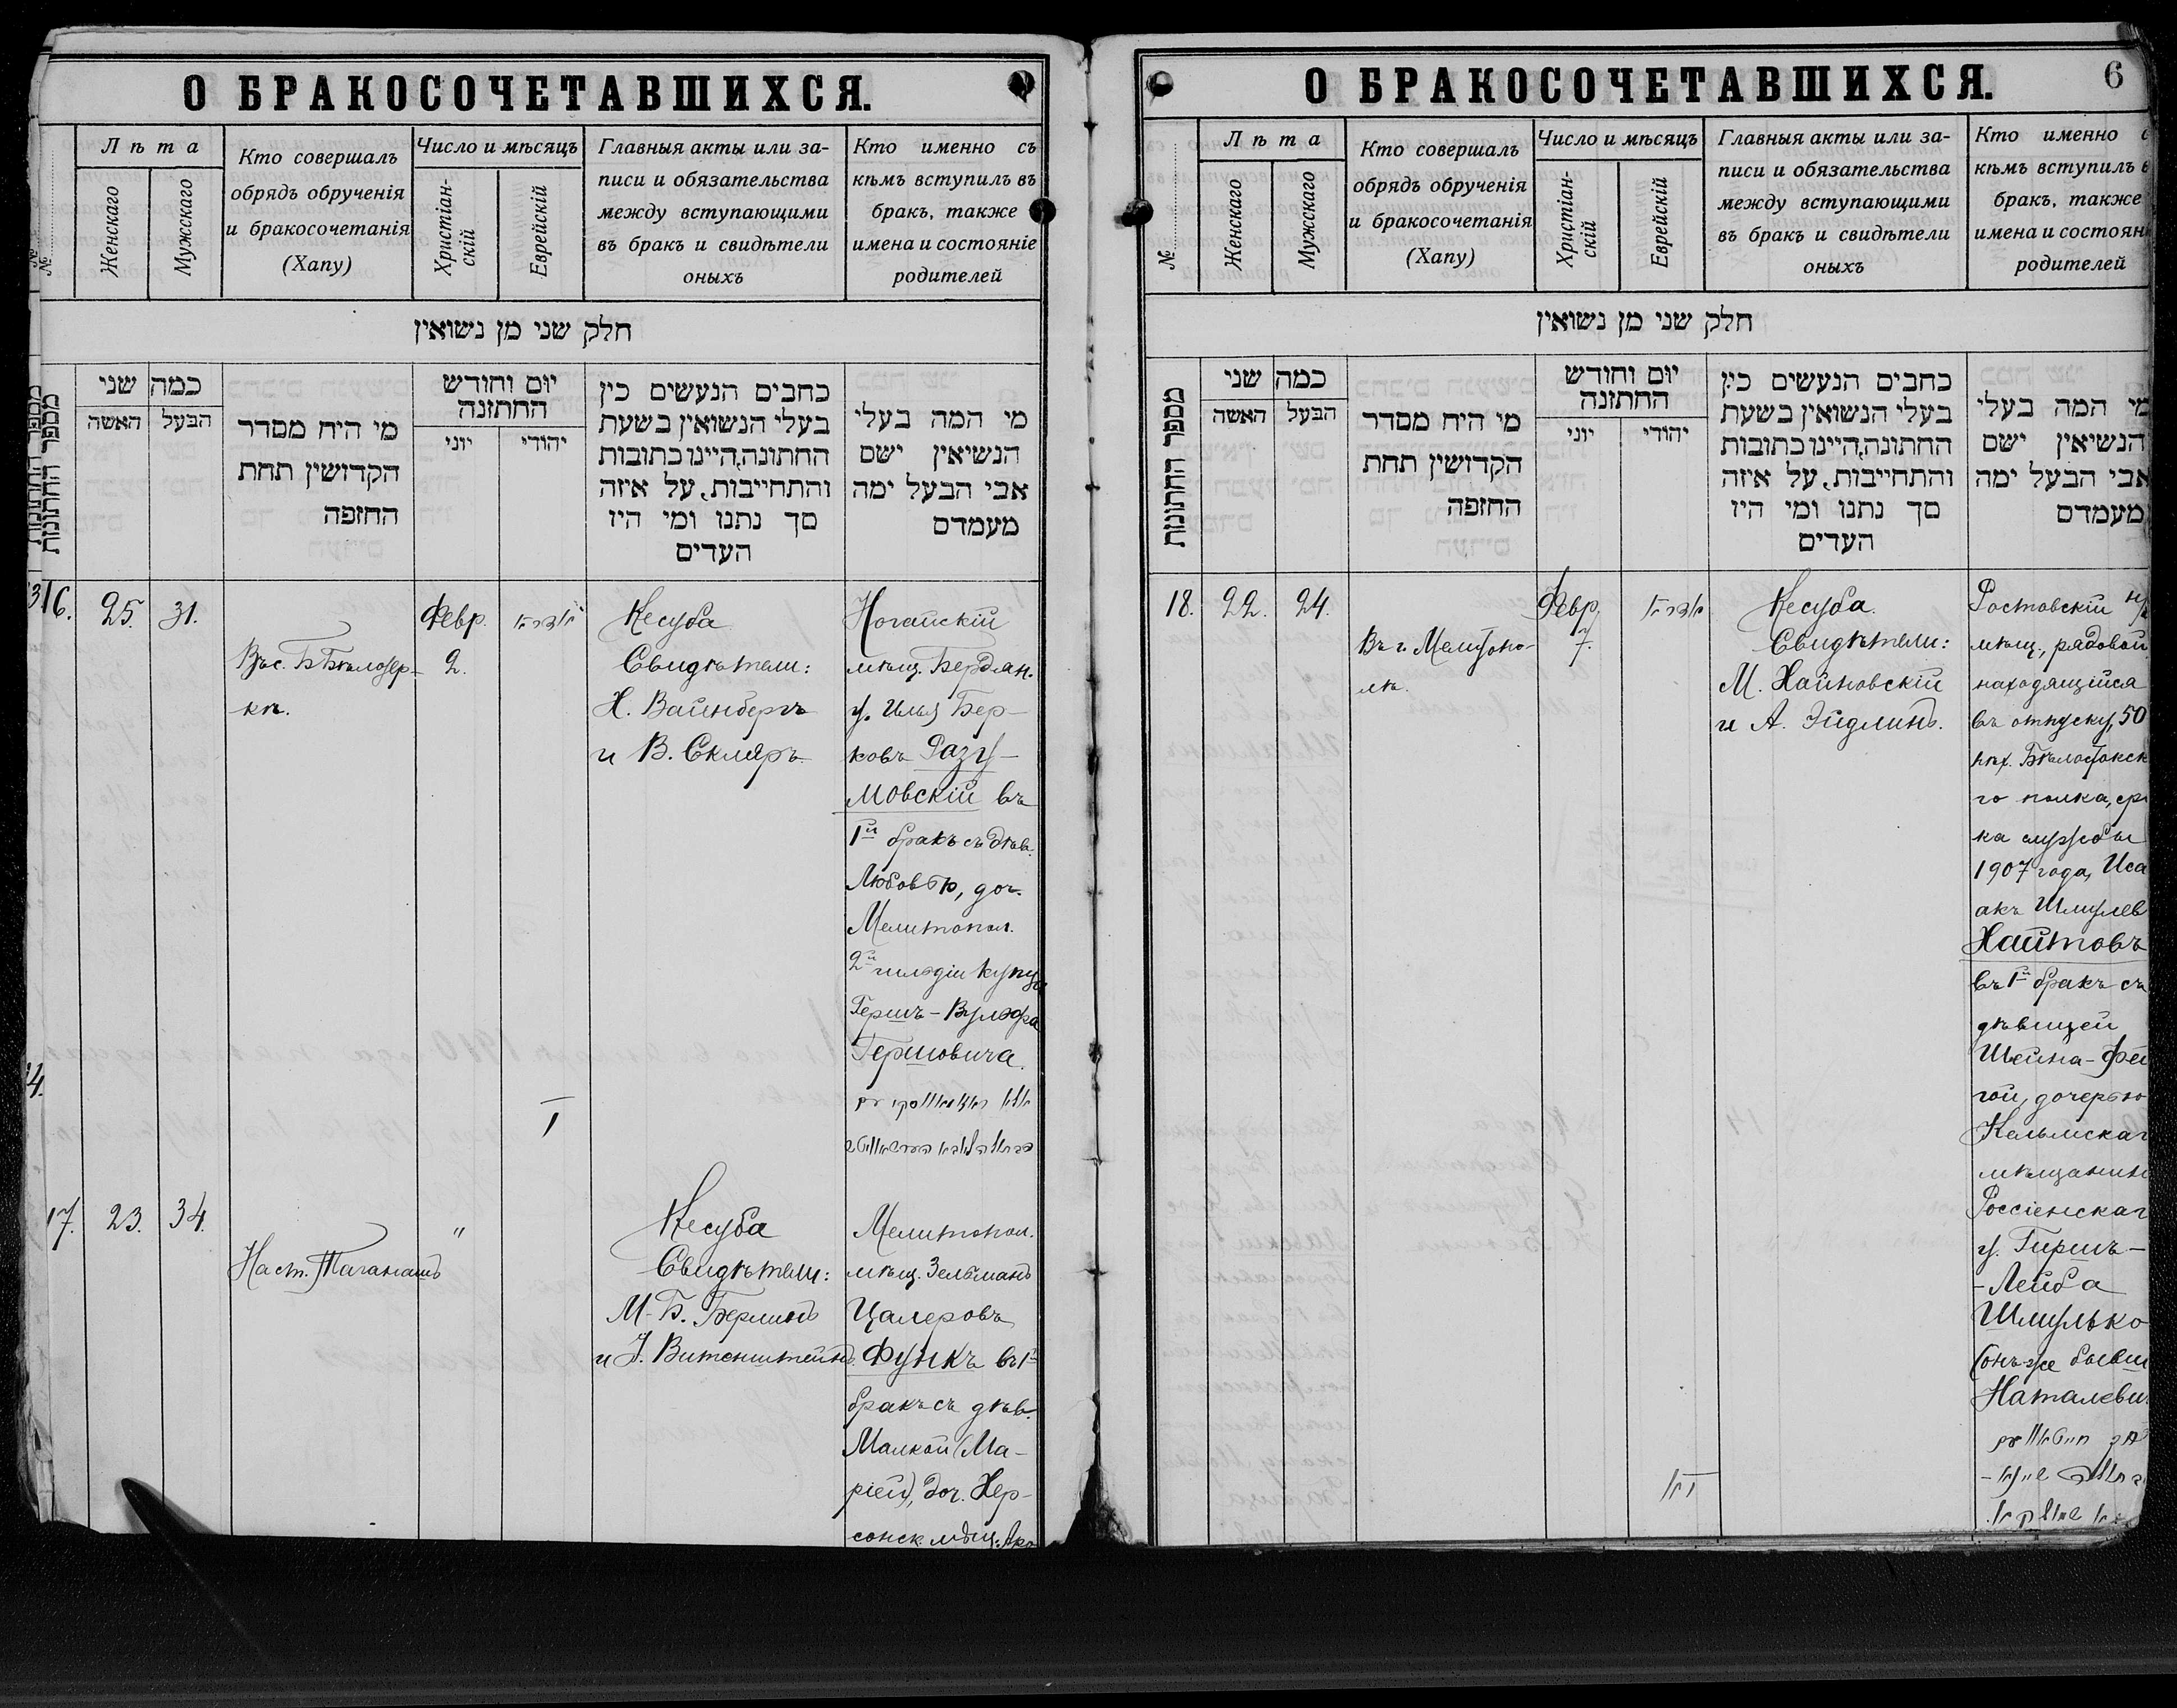 О БРАКОСОЧЕТАВШИХСЯ.
№
Лѣта
Женскаго
Мужскаго
Кто совершалъ
обрядъ обрученія
и бракосочетанія
(Хапу)
Число и мѣсяцъ
Христіан-
скій
Еврейскій
Главныя акты или за-
писи и обязательства
между вступающими
въ бракъ и свидѣтели
оныхъ
Кто именно съ
кѣмъ вступилъ въ
бракъ, также
имена и состояніе
родителей
חלק שני מן נשואין
מספר החתונות
כמה שני
האשה
הבעל
מי היה מסדר
הקדושין תחת
החופה
יום וחודש
החתונה
יוני
יהודי
כתבים הנעשים בין
בעלי הנשואין בשעת
החתונה,היינו כתובות
והתחייבות, על איזה
סך נתנו ומי היו
העדים
מי המה בעלי
הנשיאין ישם
אבי הבעל ימה
מעמדם
16.
25.
31.
Въ с. Б Бѣлозер-
кѣ.
Февр.
2.
Кесуба
Свидѣтели:
Х. Вайнбергъ
и В. Скляръ
Ногайскій
мѣщ. Бердян.
у. Илья Бер-
ковъ Разу-
мовскій въ
1й бракъ съ дѣв.
Любовью, доч.
Мелитопол.
2й гильдіи купца
Гершъ-Вульфа
Гершовича.
17.
23.
34.
На ст. Таганашъ
"
Кесуба
Свидѣтели:
М-Б. Берлинъ
и І. Витенштейнъ
Мелитопол.
мѣщ. Зельманъ
Цалеровъ
Функъ въ 1й
бракъ съ дѣв.
Малкой (Ма-
ріей), доч. Хер-
сонск. мѣщ.
О БРАКОСОЧЕТАВШИХСЯ.
6
№
Лѣта
Женскаго
Мужскаго
Кто совершалъ
обрядъ обрученія
и бракосочетанія
(Хапу)
Число и мѣсяцъ
Христіан-
скій
Еврейскій
Главныя акты или за-
писи и обязательства
между вступающими
въ бракъ и свидѣтели
оныхъ
Кто именно с
кѣмъ вступилъ в
бракъ, также
имена и состоян
родителей
חלק שני מן נשואין
מספר החתונות
כמה שני
האשה
הבעל
מי היה מסדר
הקדושין תחת
החופה
יום וחודש
החתונה
יוני
יהודי
כתבים הנעשים בין
בעלי הנשואין בשעת
החתונה,היינו כתובות
והתחייבות, על איזה
סך נתנו ומי היו
העדים
מי המה בעלי
הנשיאין ישם
אבי הבעל ימה
מעמדם
18.
22.
24.
Въ г. Мелитопо-
лѣ.
Февр.
7.
Кесуба.
Свидѣтели:
М. Хайновскій
и А. Эйдлинъ.
Ростовскій н/
мѣщ., рядовой
находящійся
въ отпуску, 50
пѣх. Бѣлостокск
го полка, сро
ка службы
1907 года, Иса
акъ Шмулев
Хаитовъ
въ 1й бракъ съ
дѣвицей
Шейна-Фей
гой, дочерью
Кельмскаг
мѣщанин
Россіенскаг
у. Гиршъ-
-Лейба
Шмулько
(онъ-же бывш
Наталеви